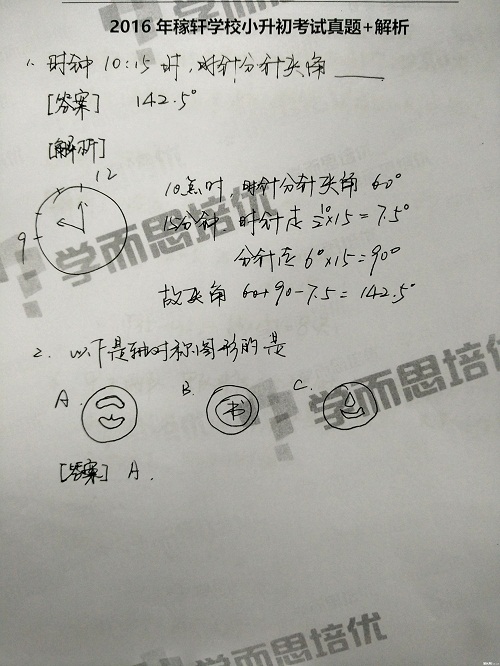 2016年稼轩学校小升初考试真题+解析
1、时钟 10:15 时,时针分针夹角
[答案] 142.5°
[解析]
12
9
10点时 时针分针夹角 60°
15分钟 时针走 1/2°×15=7.5°
分针走 6°×15=90°
故夹角 60+90-7.5=142.5°
2. 以下是轴对称图形的是
A. B. 书 C.
[答案] A.
学而思培优
学而思培优
学而思培优